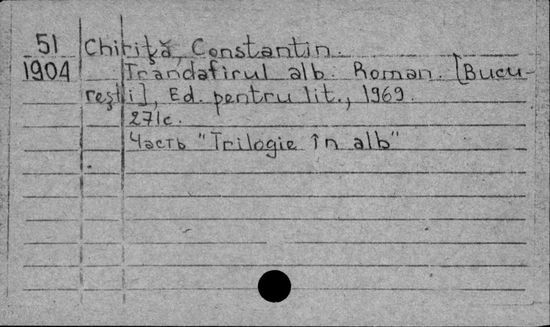 51 Chiriţă, Constantin.
1904 Trandafirul alb. Roman. [Bucu-
reşti], Ed. pentru lit., 1969.
271c.
Часть "Trilogie în alb"